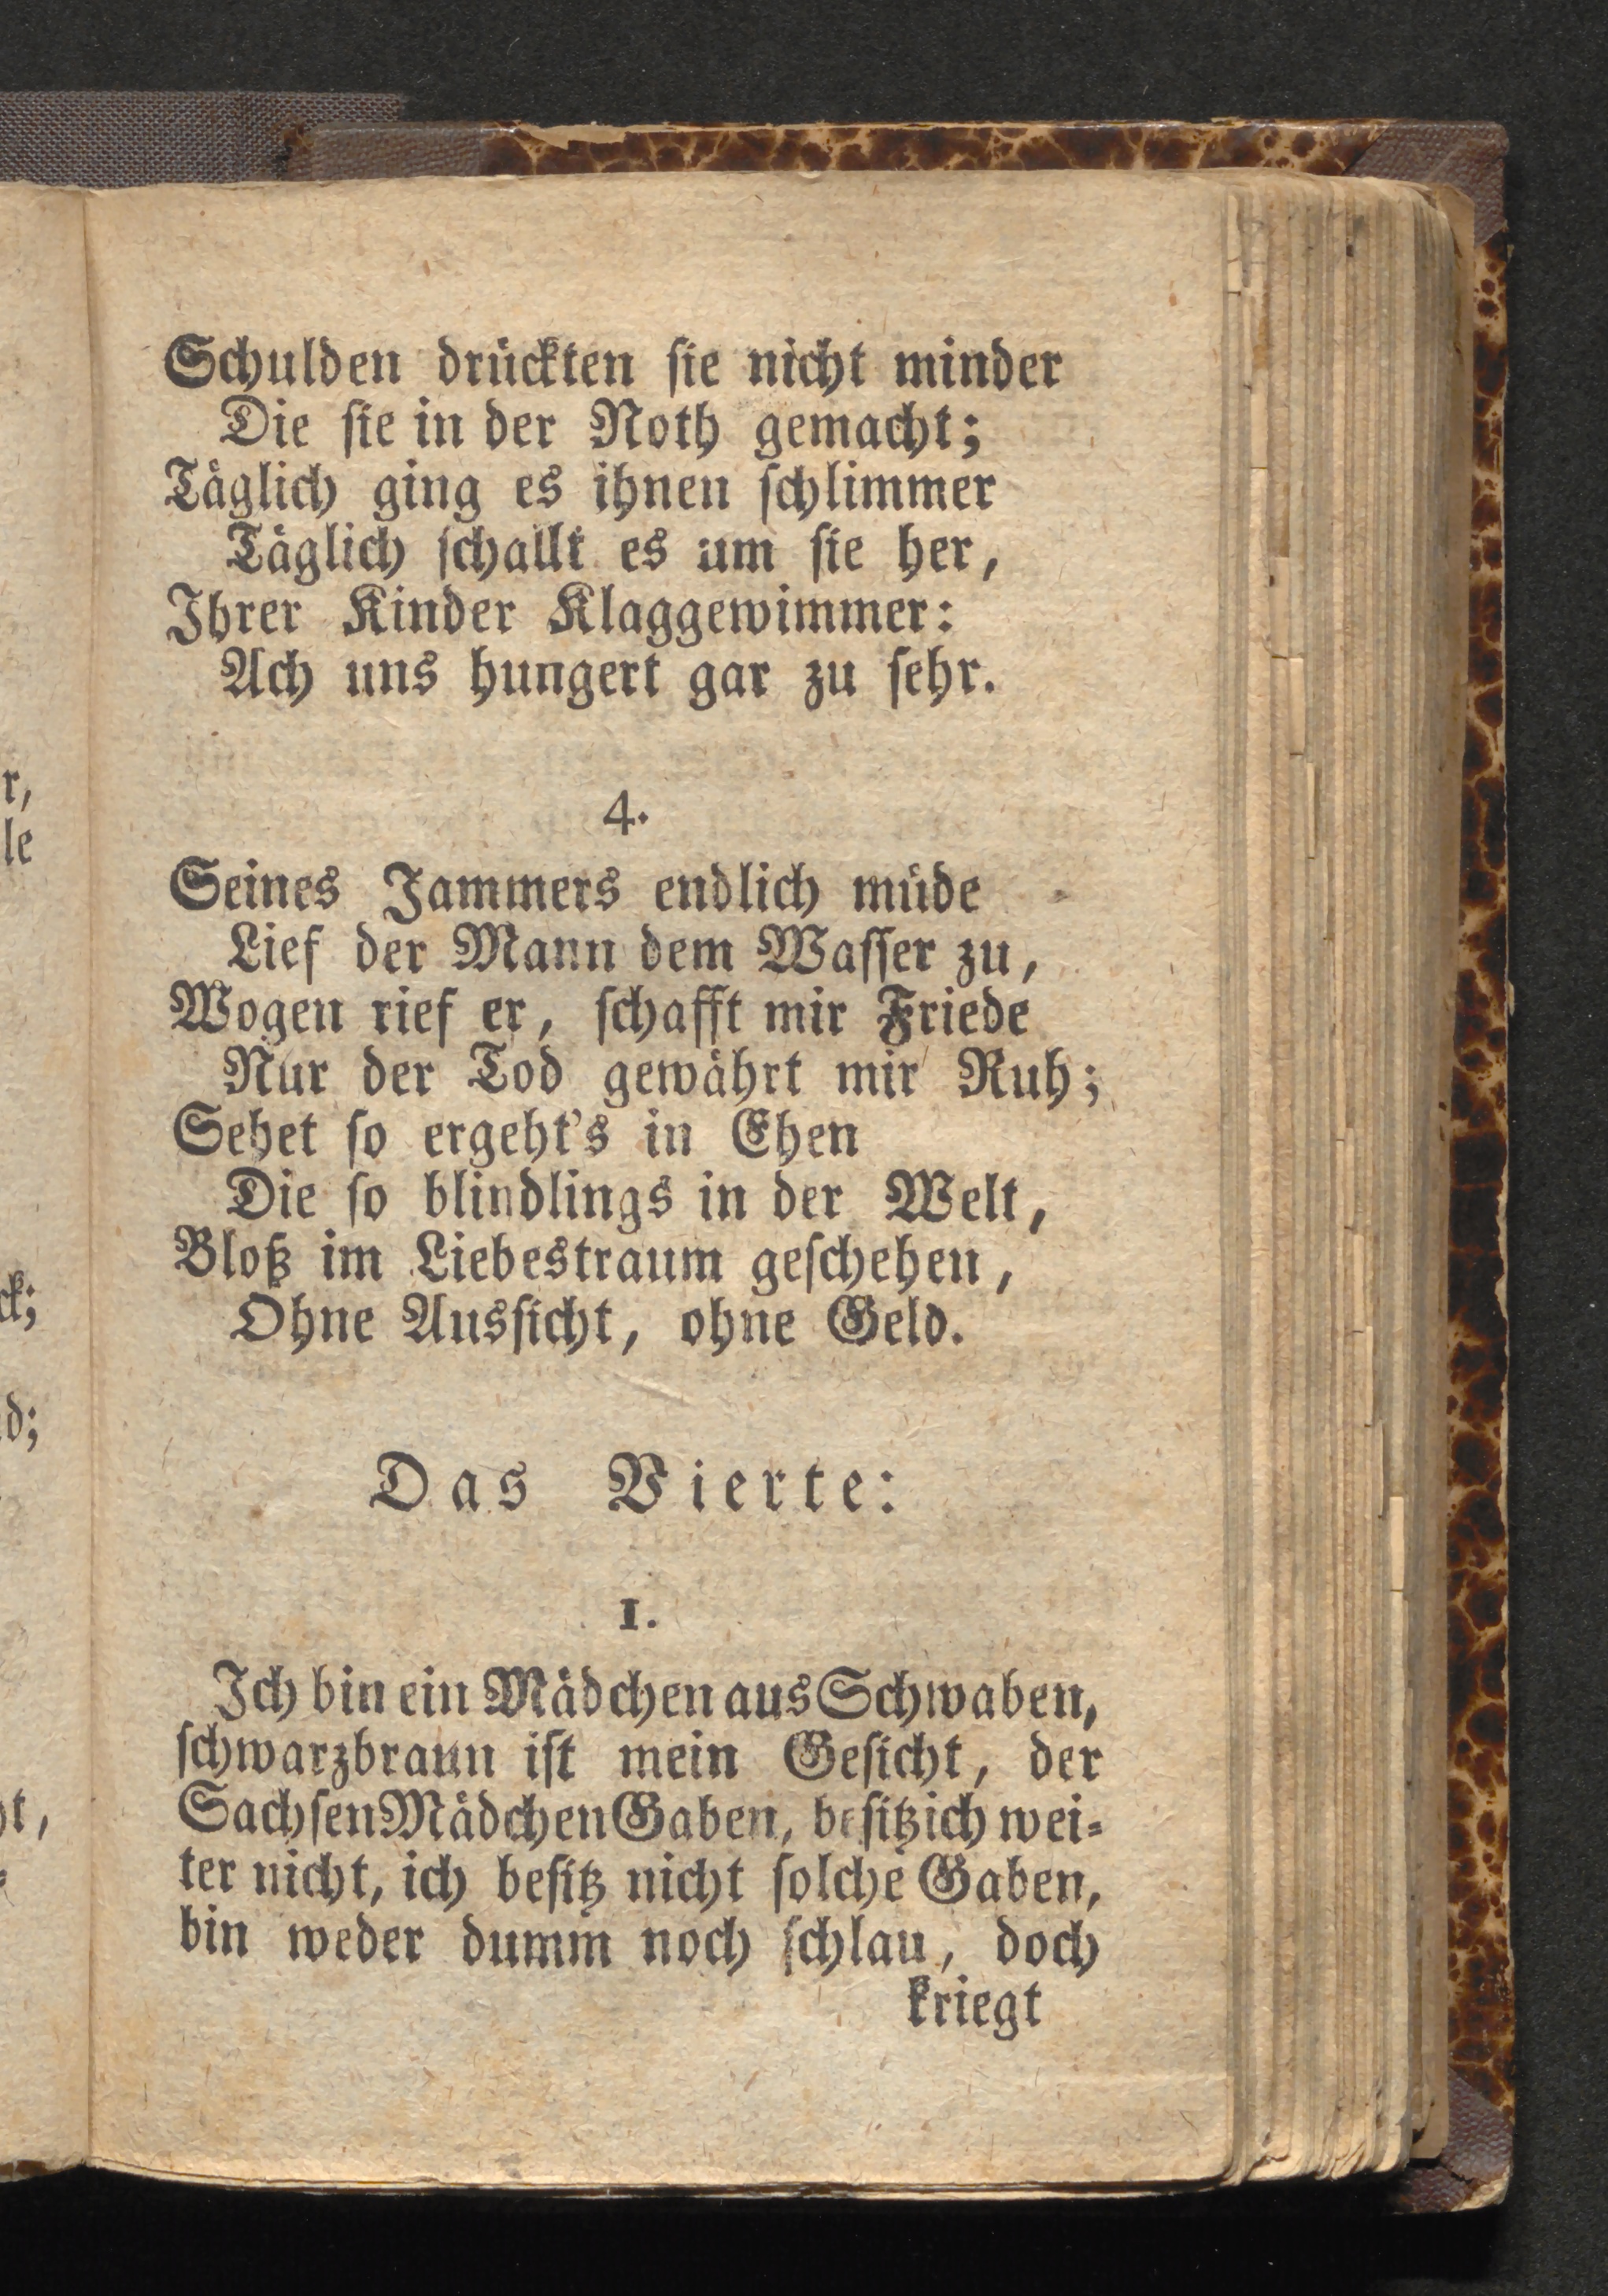 Schulden drückten ſie nicht minder
Die ſie in der Noth gemacht;
Täglich ging es ihnen ſchlimmer
Täglich ſchallt es um ſie her,
Ihrer Kinder Klaggewimmer:
Ach uns hungert gar zu ſehr.
4.
Seines Jammers endlich müde
Lief der Mann dem Waſſer zu,
Wogen rief er, ſchafft mir Friede
Nur der Tod gewährt mir Ruh;
Sehet ſo ergeht's in Ehen
Die ſo blindlings in der Welt,
Bloß im Liebestraum geſchehen,
Ohne Ausſicht, ohne Geld.
Das Vierte:
1.
Ich bin ein Mädchen aus Schwaben,
ſchwarzbraun iſt mein Geſicht, der
Sachſen Mädchen Gaben, beſitz ich wei⸗
ter nicht, ich beſitz nicht ſolche Gaben,
bin weder dumm noch ſchlau, doch
kriegt